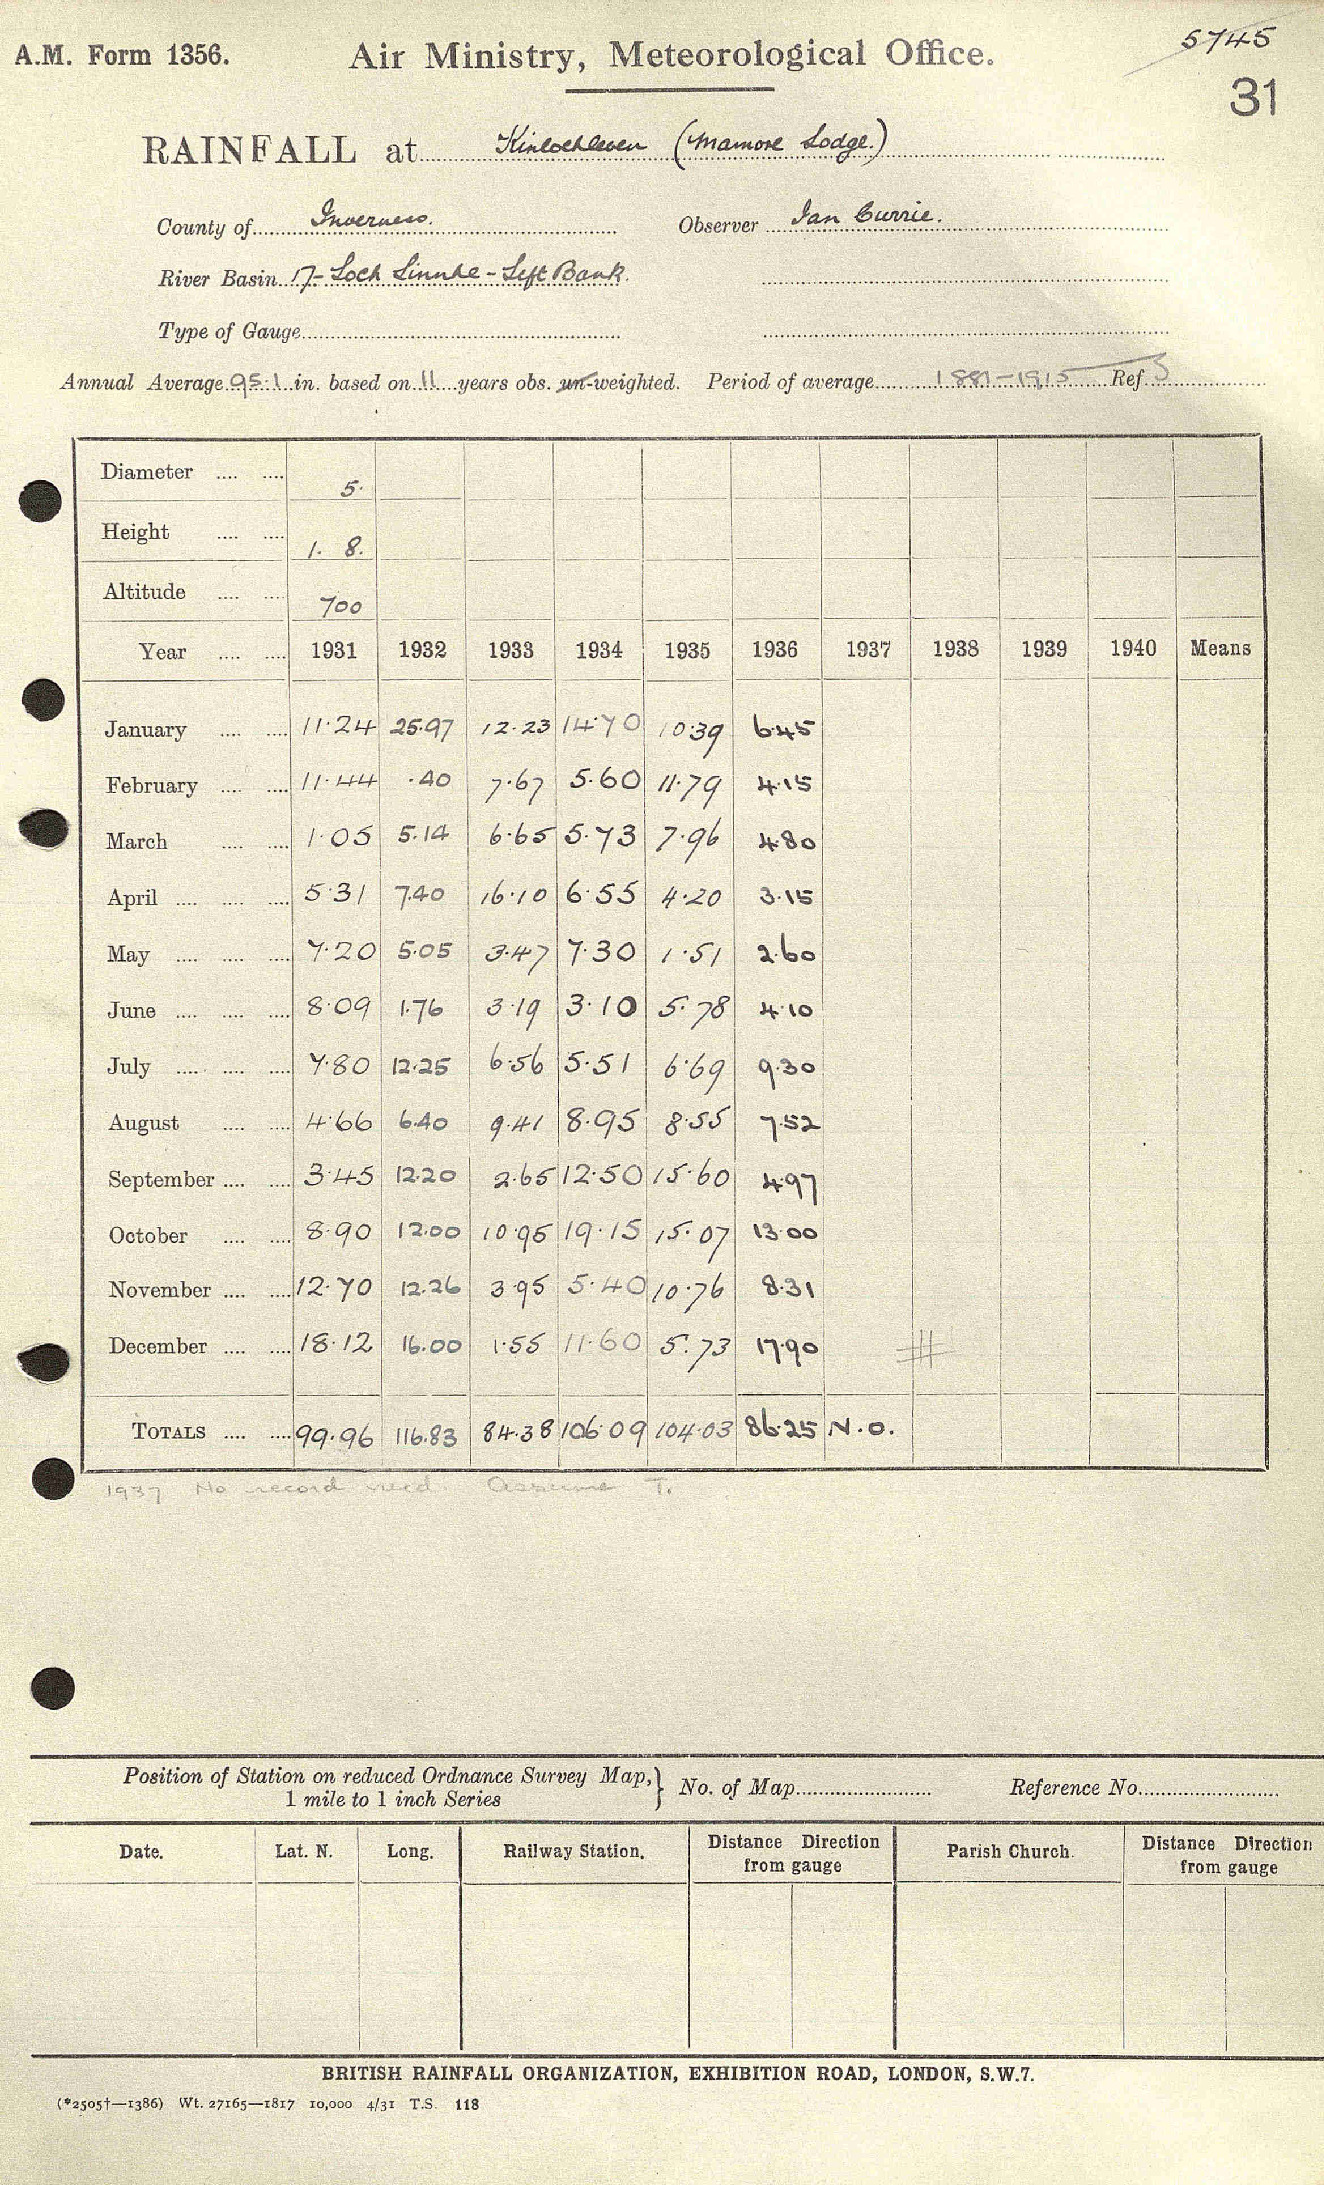 5745
A.M. Form 1356. Air Ministry, Meteorological Office.
31
RAINFALL at Kinlochleven (Mamore Lodge.)
County of Inverness. Observer Ian Currie.
River Basin 17- Loch Linnhe - Left Bank.
Type of Gauge
Annual Average 95.1 in. based on 11 years obs. un-weighted. Period of average 1881-1915 Ref. 3
Diameter .... .... 5.
Height .... .... 1. 8.
Altitude .... .... 700
Year .... .... 1931 1932 1933 1934 1935 1936 1937 1938 1939 1940 Means
January .... .... 11.24 25.97 12.23 14.70 10.39 6.45
February .... .... 11.44 .40 7.67 5.60 11.79 4.15
March .... .... 1.05 5.14 6.65 5.73 7.96 4.80
April .... .... .... 5.31 7.40 16.10 6.55 4.20 3.15
May .... .... .... 7.20 5.05 3.47 7.30 1.51 2.60
June .... .... .... 8.09 1.76 3.19 3.10 5.78 4.10
July .... .... .... 7.80 12.25 6.56 5.51 6.69 9.30
August .... .... 4.66 6.40 9.41 8.95 8.55 7.52
September .... .... 3.45 12.20 2.65 12.50 15.60 4.97
October .... .... 8.90 12.00 10.95 19.15 15.07 13.00
November .... .... 12.70 12.26 3.95 5.40 10.76 8.31
December .... .... 18.12 16.00 1.55 11.60 5.73 17.90
TOTALS .... .... 99.96 116.83 84.38 106.09 104.03 86.25 N.O.
1937 No record recd. Assume T.
Position of Station on reduced Ordnance Survey Map, } No. of Map Reference No.
1 mile to 1 inch Series
Date. Lat. N. Long. Railway Station. Distance Direction from gauge Parish Church. Distance Direction from gauge
BRITISH RAINFALL ORGANIZATION, EXHIBITION ROAD, LONDON, S.W.7.
(*2505†—1386) Wt. 27165—1817 10,000 4/31 T.S. 118